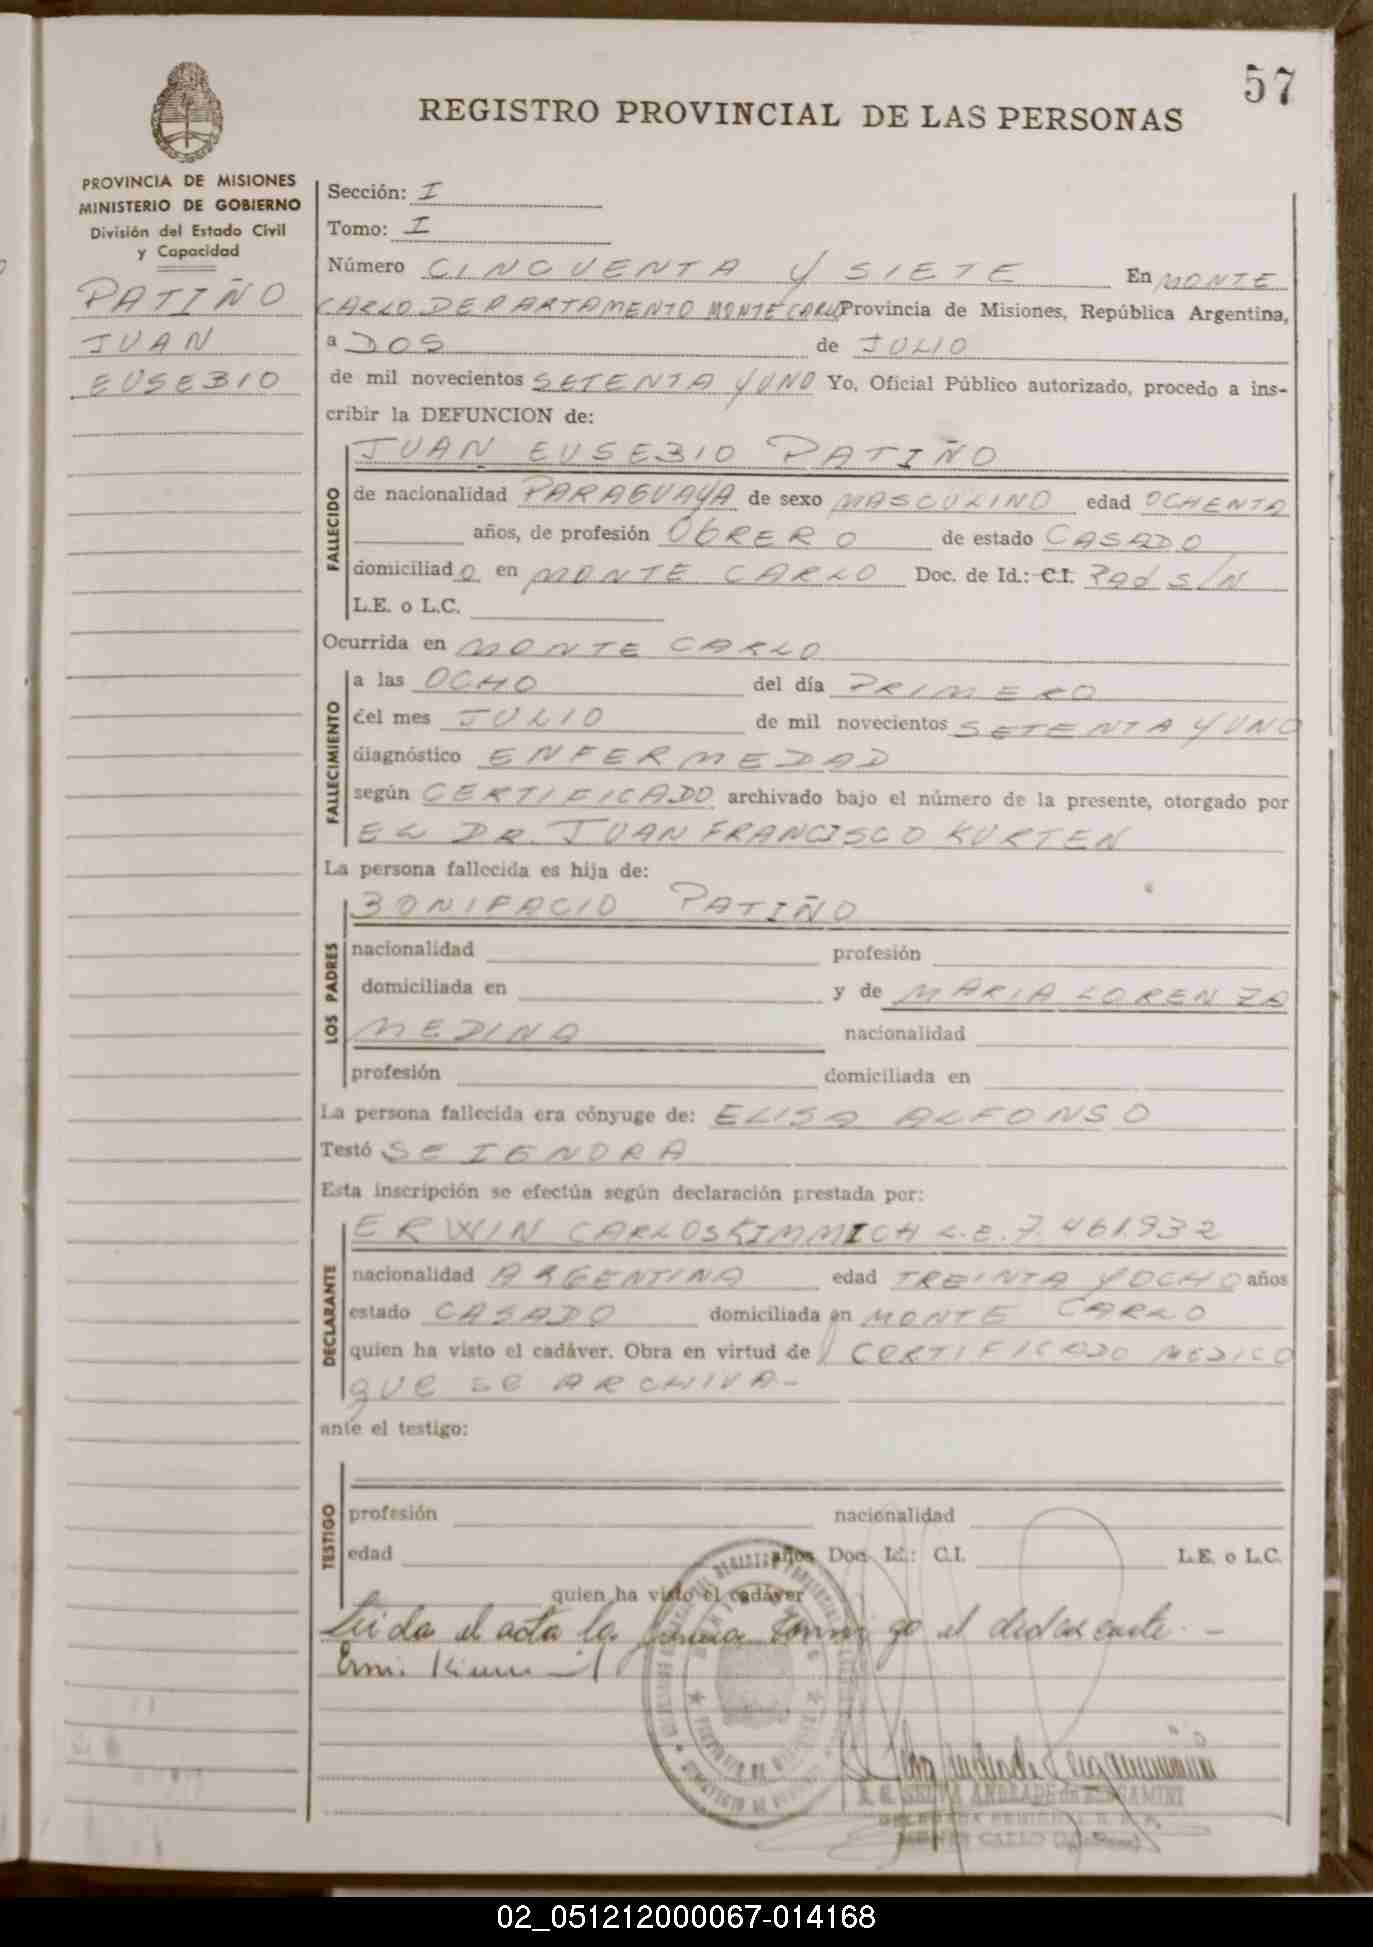 57
REGISTRO PROVINCIAL DE LAS PERSONAS
PROVINCIA DE MISIONES
MINISTERIO DE GOBIERNO
División del Estado Civil
y Capacidad
PATIÑO
JUAN
EUSEBIO
Sección: I
Tomo: I
Número CINCUENTA Y SIETE En MONTE
CARLO DEPARTAMENTO MONTECARLO Provincia de Misiones, República Argentina,
a DOS de JULIO
de mil novecientos SETENTA Y UNO Yo, Oficial Público autorizado, procedo a ins-
cribir la DEFUNCION de:
FALLECIDO
JUAN EUSEBIO PATIÑO
de nacionalidad PARAGUAYA de sexo MASCULINO edad OCHENTA
años, de profesión OBRERO de estado CASADO
domiciliado en MONTE CARLO Doc. de Id.: C.I. Pad S/N
L.E. o L.C.
Ocurrida en MONTE CARLO
FALLECIMIENTO
a las OCHO del día PRIMERO
del mes JULIO de mil novecientos SETENTA Y UNO
diagnóstico ENFERMEDAD
según CERTIFICADO archivado bajo el número de la presente, otorgado por
EL DR. JUAN FRANCISCO KURTEN
La persona fallecida es hija de:
LOS PADRES
BONIFACIO PATIÑO
nacionalidad profesión
domiciliada en y de MARIA LORENZA
MEDINA nacionalidad
profesión domiciliada en
La persona fallecida era cónyuge de: ELISA ALFONSO
Testó SE IGNORA
Esta inscripción se efectúa según declaración prestada por:
DECLARANTE
ERWIN CARLOS KIMMICH L.E. 7.461.932
nacionalidad ARGENTINA edad TREINTA Y OCHO años
estado CASADO domiciliada en MONTE CARLO
quien ha visto el cadáver. Obra en virtud de CERTIFICADO MEDICO
QUE SE ARCHIVA-
ante el testigo:
TESTIGO
profesión nacionalidad
edad años Doc. Id.: C.I. L.E. o L.C.
quien ha visto el cadáver
Leida el acta la firma conmigo el declarante. -
MONTE CARLO
02_051212000067-014168